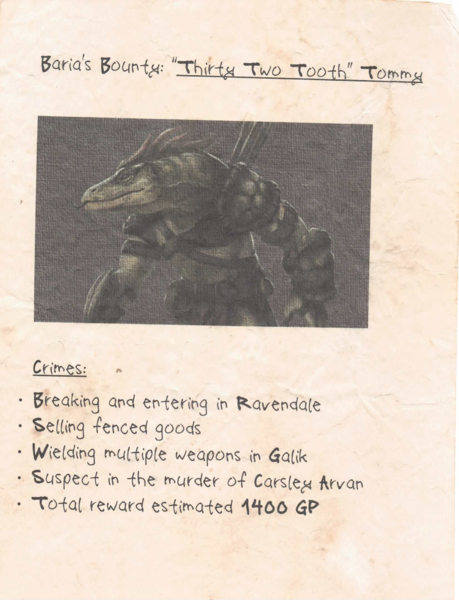 Baria's Bounty: "Thirty Two Tooth" Tommy
Crimes:
· Breaking and entering in Ravendale
· Selling fenced goods
· Wielding multiple weapons in Galik
· Suspect in the murder of Carsley Arvan
· Total reward estimated 1400 GP